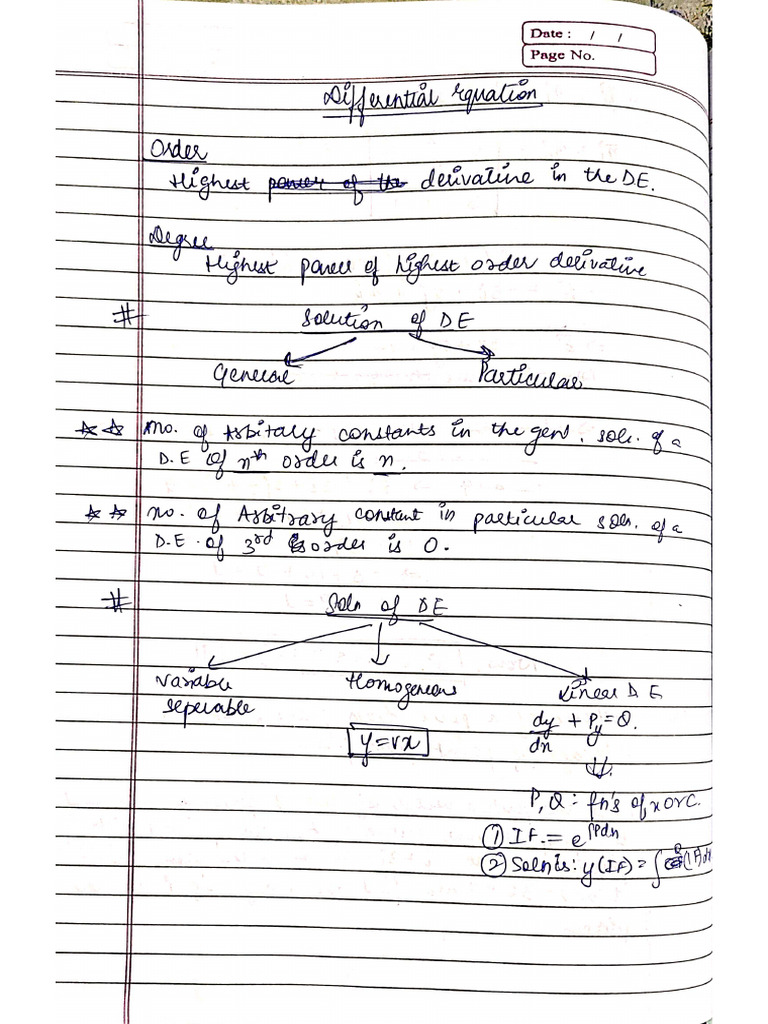 Date : / /
Page No.
Differential Equation
Order
Highest power of the derivative in the DE.
Degree
Highest power of highest order derivative
# Solution of DE
General Particular
☆☆ No. of Arbitary constants in the genl. soln. of a
D.E of nth order is n.
☆☆ no. of Arbitrary constant in particular soln. of a
D.E. of 3rd order is 0.
# Soln of DE
Variable Homogeneous Linear DE
seperable
dy/dx + Py = Q.
y = vx
P, Q : fn's of x or c.
① I.F. = e^∫Pdx
② Soln is : y(IF) = ∫Q(IF)dx